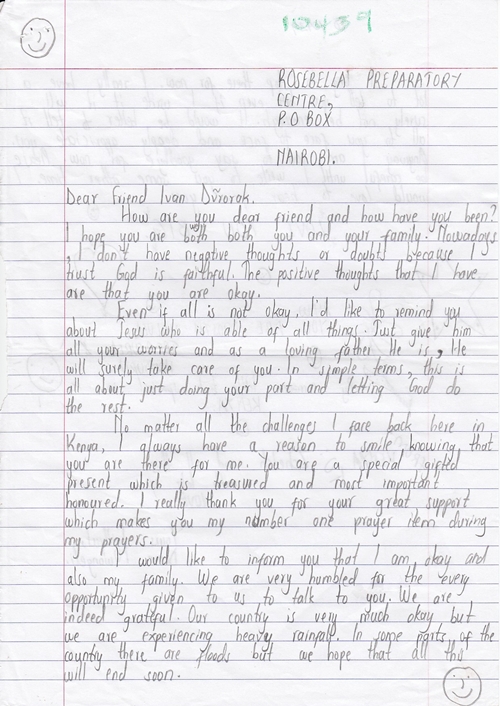 10439
ROSEBELLA PREPARATORY
CENTRE,
P.O BOX
NAIROBI.
Dear Friend Ivan Dvrorak.
How are you dear friend and how have you been?
I hope you are well both both you and your family. Nowadays
I don't have negative thoughts or doubts because I
trust God is faithful. The positive thoughts that I have
are that you are okay.
Even if all is not okay, I'd like to remind you
about Jesus who is able of all things. Just give him
all your worries and as a loving father He is, He
will surely take care of you. In simple terms, this is
all about just doing your part and letting God do
the rest.
No matter all the challenges I face back here in
Kenya, I always have a reason to smile knowing that
you are there for me. You are a special gifted
present which is treasured and most important
honoured. I really thank you for your great support
which makes you my number one prayer item during
my prayers.
I would like to inform you that I am okay and
also my family. We are very humbled for the every
opportunity given to us to talk to you. We are
indeed grateful. Our country is very much okay but
we are experiencing heavy rainfall. In some parts of the
country there are floods but we hope that all this
will end soon.